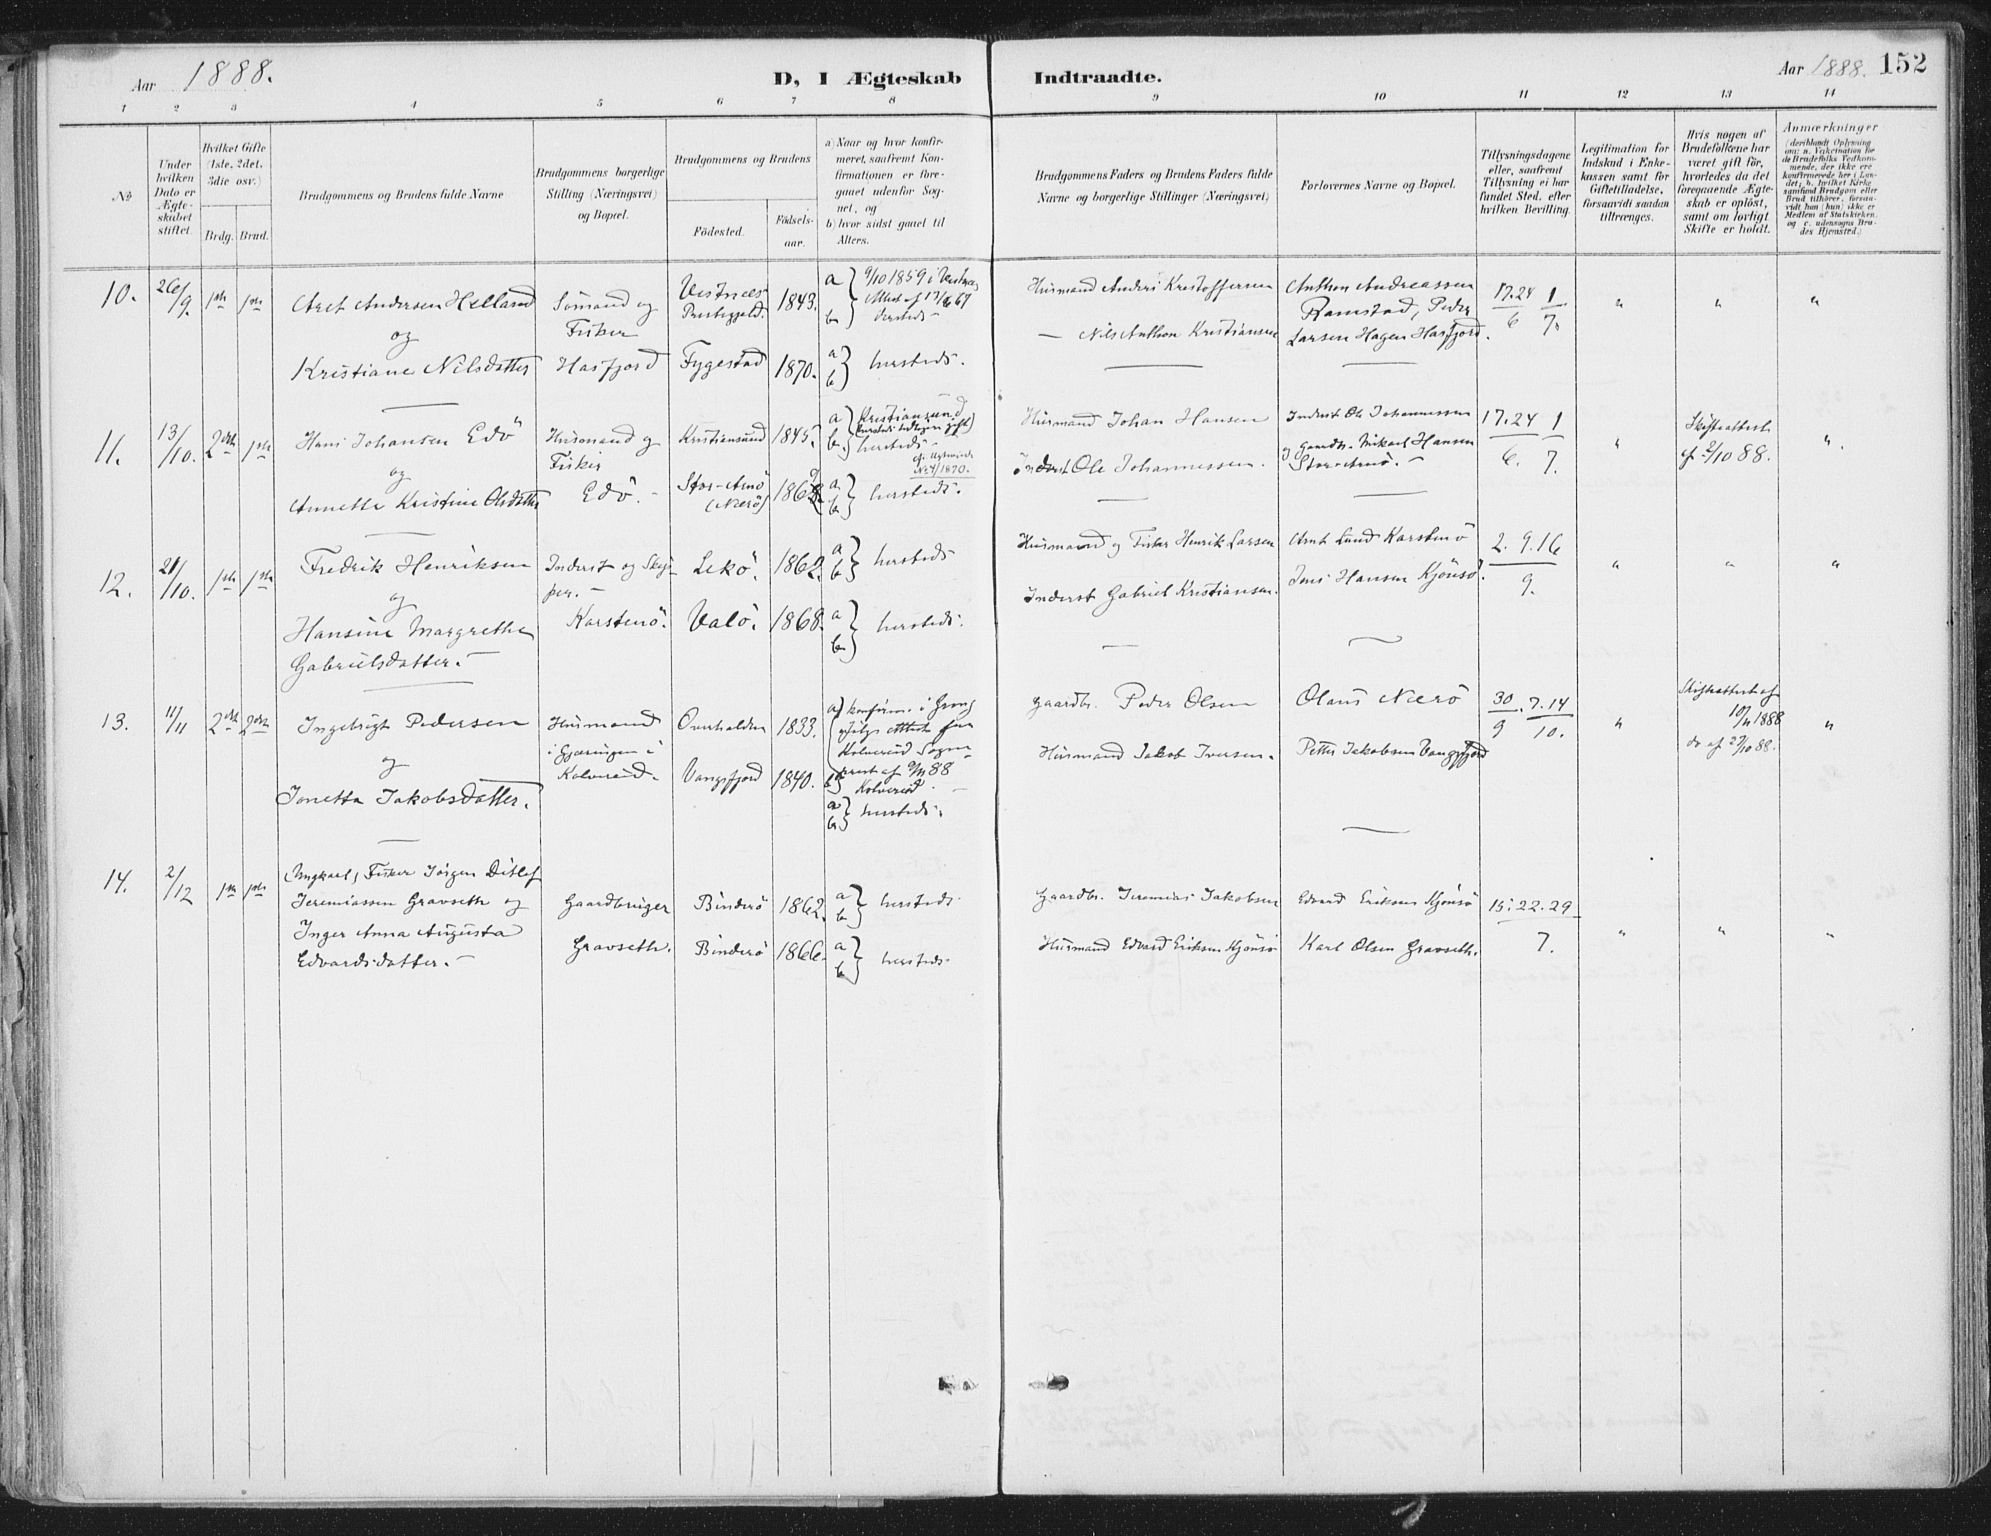 Aar 1888.
D, I Ægteskab Indtraadte.
Aar 1888. 152
1 2 3 4 5 6 7 8 9 10 11 12 13 14
No
Under hvilken Dato er Ægteskabet stiftet.
Hvilket Gifte (1ste, 2det, 3die osv.)
Brdg. Brud.
Brudgommens og Brudens fulde Navne
Brudgommens borgerlige Stilling (Næringsvei) og Bopæl.
Brudgommens og Brudens
Födested.
Födselsaar.
a) Naar og hvor konfirmeret, saafremt Konfirmationen er foregaaet udenfor Sognet, og
b) hvor sidst gaaet til Alters.
Brudgommens Faders og Brudens Faders fulde Navne og borgerlige Stillinger (Næringsvei)
Forlovernes Navne og Bopæl.
Tillysningsdagene eller, saafremt Tillysning ei har fundet Sted, efter hvilken Bevilling.
Legitimation for Indskud i Enkekassen samt for Giftetilladelse, forsaavidt saadan tiltrænges.
Hvis nogen af Brudefolkene har været gift för, hvorledes da det foregaaende Ægteskab er oplöst, samt om lovligt Skifte er holdt.
Anmærkninger (deriblandt Oplysning om: a. Vakcination for de Brudefolks Vedkommende, der ikke ere konfirmerede her i Landet; b. hvilket Kirkesamfund Brudgom eller Brud tilhörer, forsaavidt han (hun) ikke er Medlem af Statskirken, og c. udensogns Brudes Hjemsted.)
10. 26/9. 1ste 1ste
Aret Andersen Helland
og
Kristiane Nilsdatter
Sömand og
Fisker
Hasfjord
Vestnes
Prestegjeld. 1843.
Fygestad 1870.
a 9/10 1859 i Vestnes
Attest af
b hersteds
a
b hersteds.
Husmand Anders Kristoffersen
— Nils Anthon Kristiansen
Anthon Andreassen
Ramstad, Peder
Larsen Hagen Hasfjord.
17. 24 1
6 7.
" " "
11. 13/10. 2det 1ste
Hans Johansen Edö
og
Annette Kristine Olsdatter
Husmand og
Fisker
Edö.
Kristiansund 1845.
Stor-Arnö
(Nærö)
a Kristiansund
b hersteds
No 4/1870.
a
b hersteds.
Husmand Johan Hansen
Inderst Ole Johannessen.
Inderst Ole Johannessen
og Gaardb. Mikael Hansen
Stor-Arnö.
17. 24 1
6. 7.
"
Skifteattest
af 2/10 88.
"
12. 21/10. 1ste 1ste
Fredrik Henriksen
og
Hansine Margrethe
Gabrielsdatter.
Inderst og Skip-
per.
Karstenö.
Lekö. 1862.
Valö. 1868.
a
b hersteds
a
b hersteds.
Husmand og Fisker Henrik Larsen
Inderst Gabriel Kristiansen.
Arnt Lund Karstenö
Jens Hansen Kjönsö.
2. 9. 16
9.
" " "
13. 11/11 2det 2det
Ingebrigt Pedersen
og
Jonetta Jakobsdatter.
Husmand
i Gjæringen i
Kolvereid.
Overhalden 1833.
Vangsfjord 1840.
a konfirm. i Grong
ifölge Attest fra
Kolvereid Sogne-
prest af 9/11 88
b Kolvereid
a
b hersteds.
Gaardbr. Peder Olsen
Husmand Jakob Iversen.
Olaus Nærö
Petter Jakobsen Vangsfjord
30 7. 14
9 10.
"
Skifteattest af
10/11 1888
do af 27/10 88.
"
14. 2/12 1ste 1ste
Ungkarl, Fisker Jörgen Ditlef
Jeremiassen Gravseth og
Inger Anna Augusta
Edvardsdatter.
Gaardbruger
Gravseth.
Binderö 1862.
Binderö 1866.
a
b hersteds.
a
b hersteds.
Gaardbr. Jeremias Jakobsen
Husmand Edvard Eriksen Kjönsö
Edvard Eriksen Kjönsö
Karl Olsen Gravseth.
15. 22. 29
7.
" " "